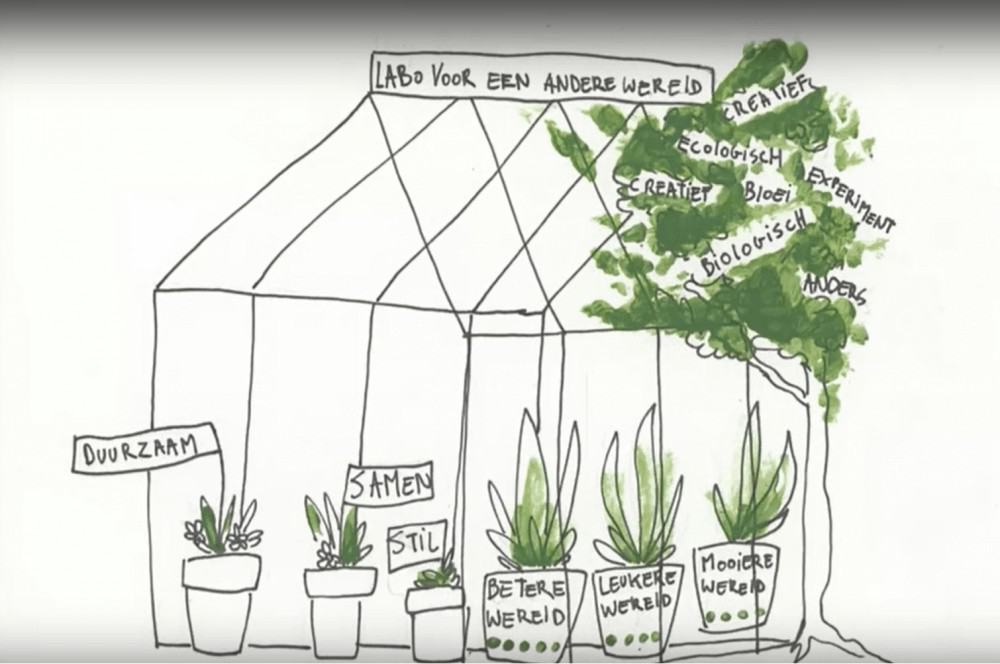 LABO VOOR EEN ANDERE WERELD
CREATIEF
ECOLOGISCH
CREATIEF
BLOEI
EXPERIMENT
BIOLOGISCH
ANDERS
DUURZAAM
SAMEN
STIL
BETERE
WERELD
LEUKERE
WERELD
MOOIERE
WERELD